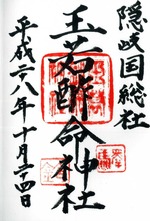 隠岐国総社
玉若酢命神社
平成二八年十月二四日